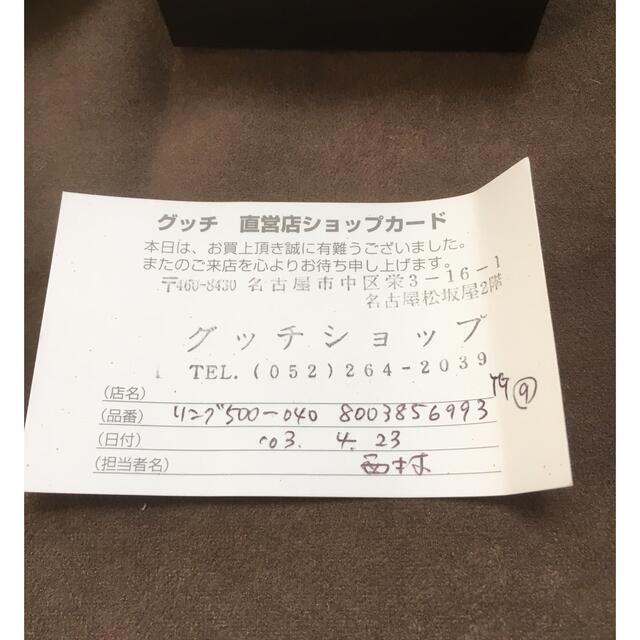 グッチ 直営店ショップカード
本日は、お買上頂き誠に有難うございました。
またのご来店を心よりお待ち申し上げます。
〒460-8430 名古屋市中区栄3-16-1
名古屋松坂屋2階
グッチショップ
TEL.(052)264-2039
(店名)
(品番) リング500-040 8003856993 ⑨
(日付) 03. 4. 23
(担当者名) 西村